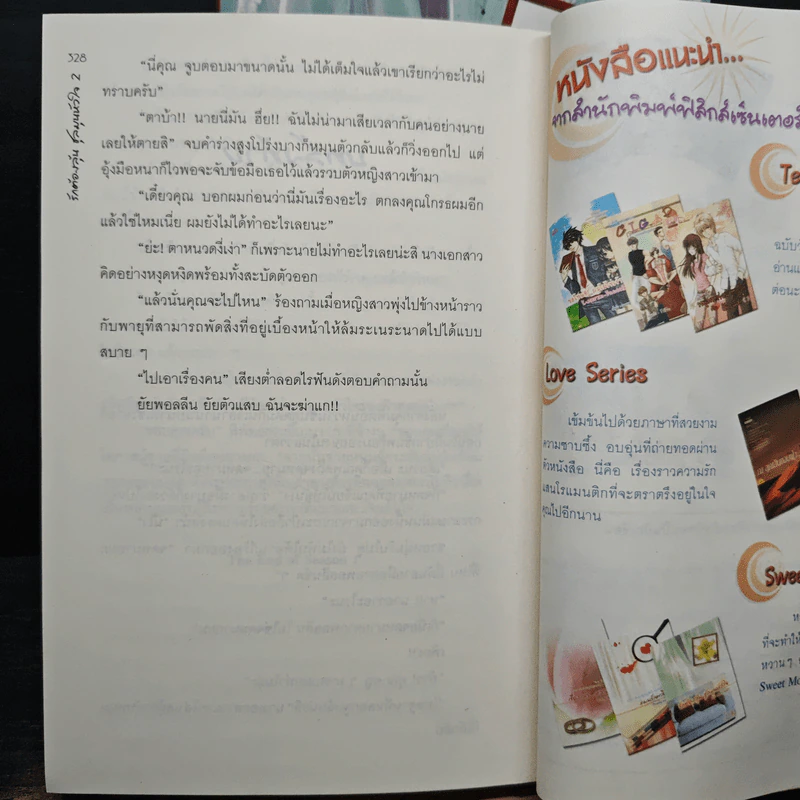 328
รักต้องวุ่น ชุลมุนหัวใจ 2
“นี่คุณ จูบตอบมาขนาดนั้น ไม่ได้เต็มใจแล้วเขาเรียกว่าอะไรไม่
ทราบครับ”
“ตาบ้า!! นายนี่มัน ฮึ่ย!! ฉันไม่น่ามาเสียเวลากับคนอย่างนาย
เลยให้ตายสิ” จบคำร่างสูงโปร่งบางก็หมุนตัวกลับแล้วก็วิ่งออกไป แต่
อุ้งมือหนาก็ไวพอจะจับข้อมือเธอไว้แล้วรวบตัวหญิงสาวเข้ามา
“เดี๋ยวคุณ บอกผมก่อนว่านี่มันเรื่องอะไร ตกลงคุณโกรธผมอีก
แล้วใช่ไหมเนี่ย ผมยังไม่ได้ทำอะไรเลยนะ”
“ย่ะ! ตาหนวดงี่เง่า” ก็เพราะนายไม่ทำอะไรเลยน่ะสิ นางเอกสาว
คิดอย่างหงุดหงิดพร้อมทั้งสะบัดตัวออก
“แล้วนั่นคุณจะไปไหน” ร้องถามเมื่อหญิงสาวพุ่งไปข้างหน้าราว
กับพายุที่สามารถพัดสิ่งที่อยู่เบื้องหน้าให้ล้มระเนระนาดไปได้แบบ
สบาย ๆ
“ไปเอาเรื่องคน” เสียงต่ำลอดไรฟันดังตอบคำถามนั้น
ยัยพอลลีน ยัยตัวแสบ ฉันจะฆ่าแก!!
หนังสือแนะนำ...
จากสำนักพิมพ์ฟิสิกส์เซ็นเตอร์
Te
ฉบับ
อ่านแ
ต่อนะ
Love Series
เข้มข้นไปด้วยภาษาที่สวยงาม
ความซาบซึ้ง อบอุ่นที่ถ่ายทอดผ่าน
ตัวหนังสือ นี่คือ เรื่องราวความรัก
แสนโรแมนติกที่จะตราตรึงอยู่ในใจ
คุณไปอีกนาน
Swee
ห
ที่จะทำให้
หวาน ๆ
Sweet Mo